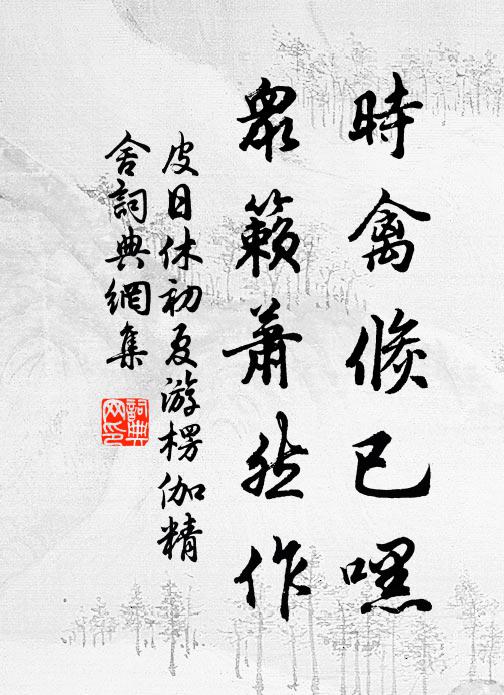 時禽倏已嘿
眾籟蕭然作
皮日休初夏游楞伽精
舍詞典網集
詞典网印